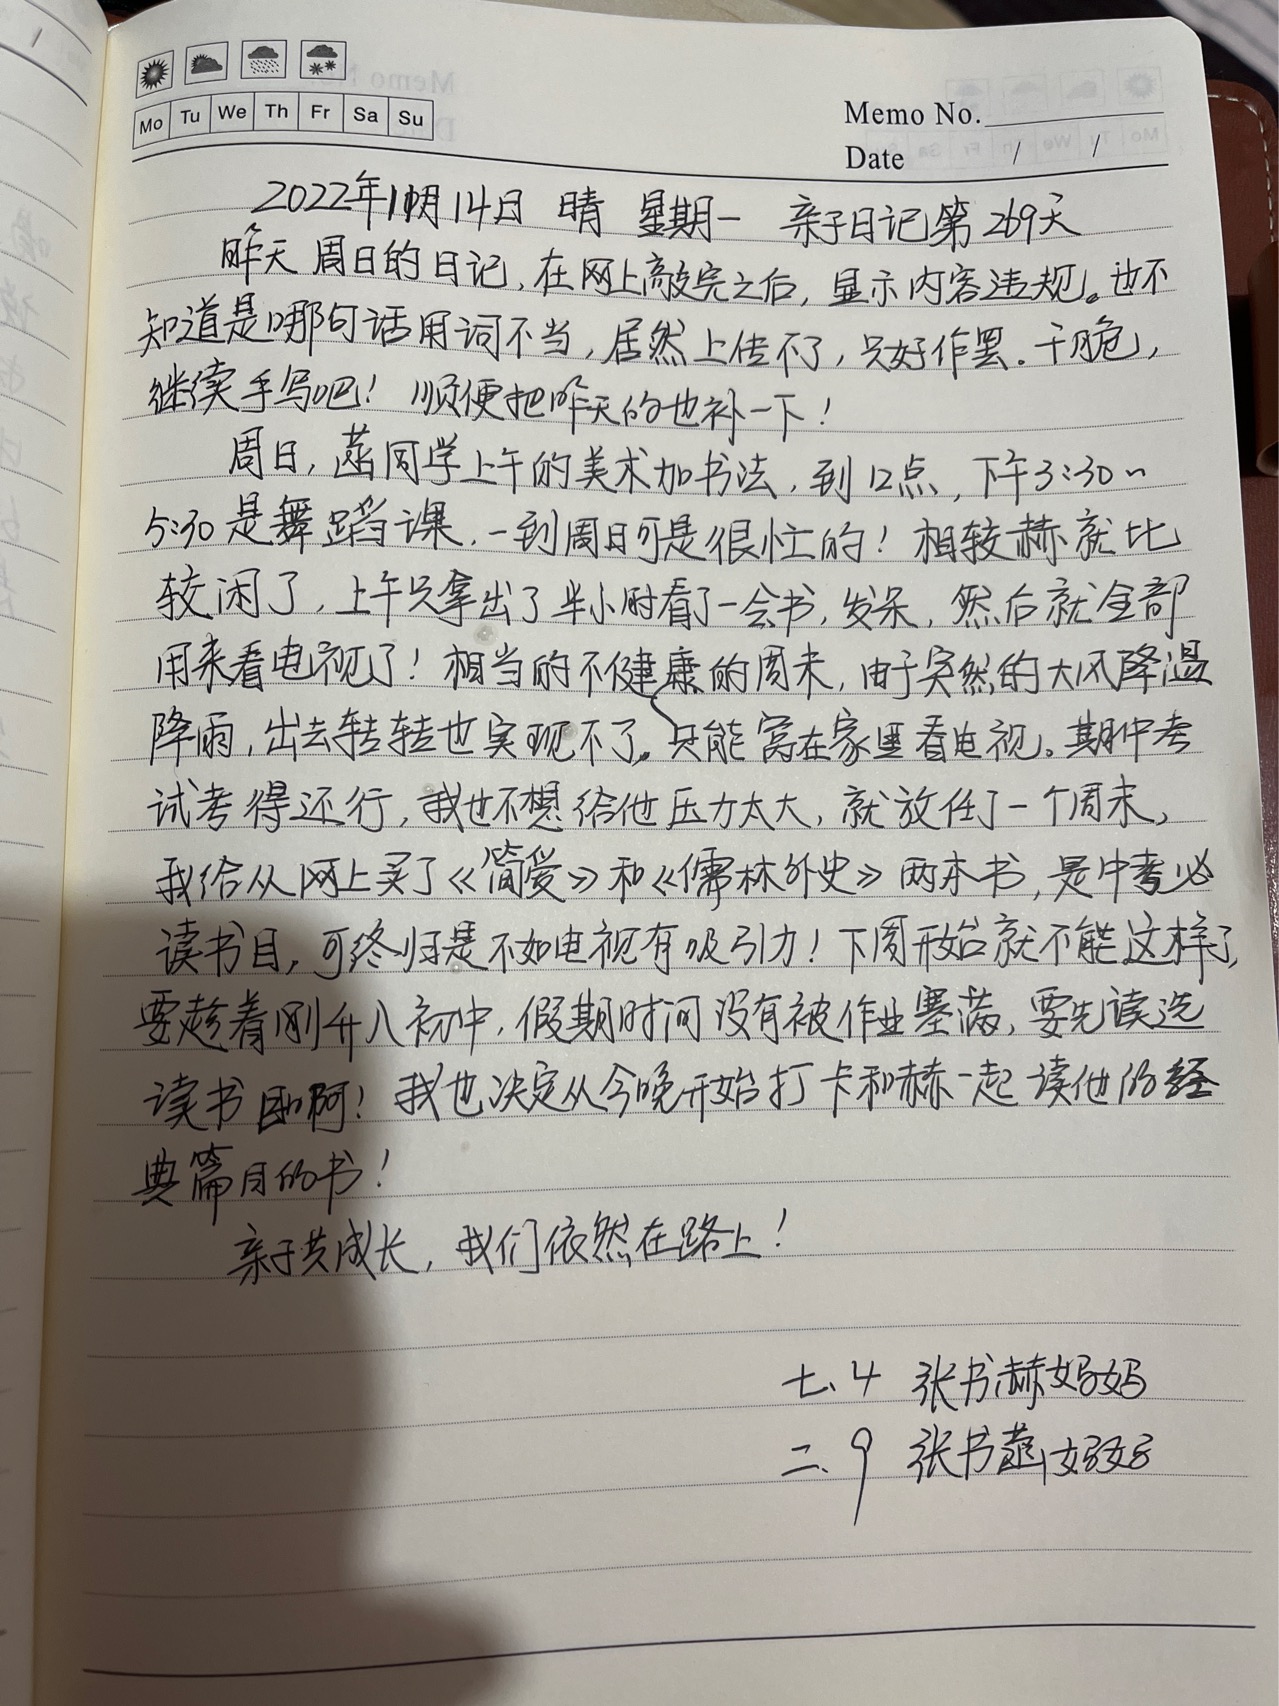 Mo Tu We Th Fr Sa Su
Memo No.
Date / /
2022年11月14日 晴 星期一 亲子日记第269天
昨天周日的日记,在网上敲完之后,显示内容违规。也不
知道是哪句话用词不当,居然上传不了,只好作罢。干脆,
继续手写吧!顺便把昨天的也补一下!
周日,菡同学上午的美术加书法,到12点,下午3:30~
5:30是舞蹈课,一到周日可是很忙的!相较赫就比
较闲了,上午只拿出了半小时看了一会书,发呆,然后就全部
用来看电视了!相当的不健康的周末,由于突然的大风降温
降雨,出去转转也实现不了。只能窝在家里看电视。期中考
试考得还行,我也不想给他压力太大,就放任了一个周末,
我给从网上买了《简爱》和《儒林外史》两本书,是中考必
读书目,可终归是不如电视有吸引力!下周开始就不能这样了,
要趁着刚升入初中,假期时间没有被作业塞满,要先读选
读书目啊!我也决定从今晚开始打卡和赫一起读他的经
典篇目的书!
亲子共成长,我们依然在路上!
七.4 张书赫妈妈
二.9 张书菡妈妈